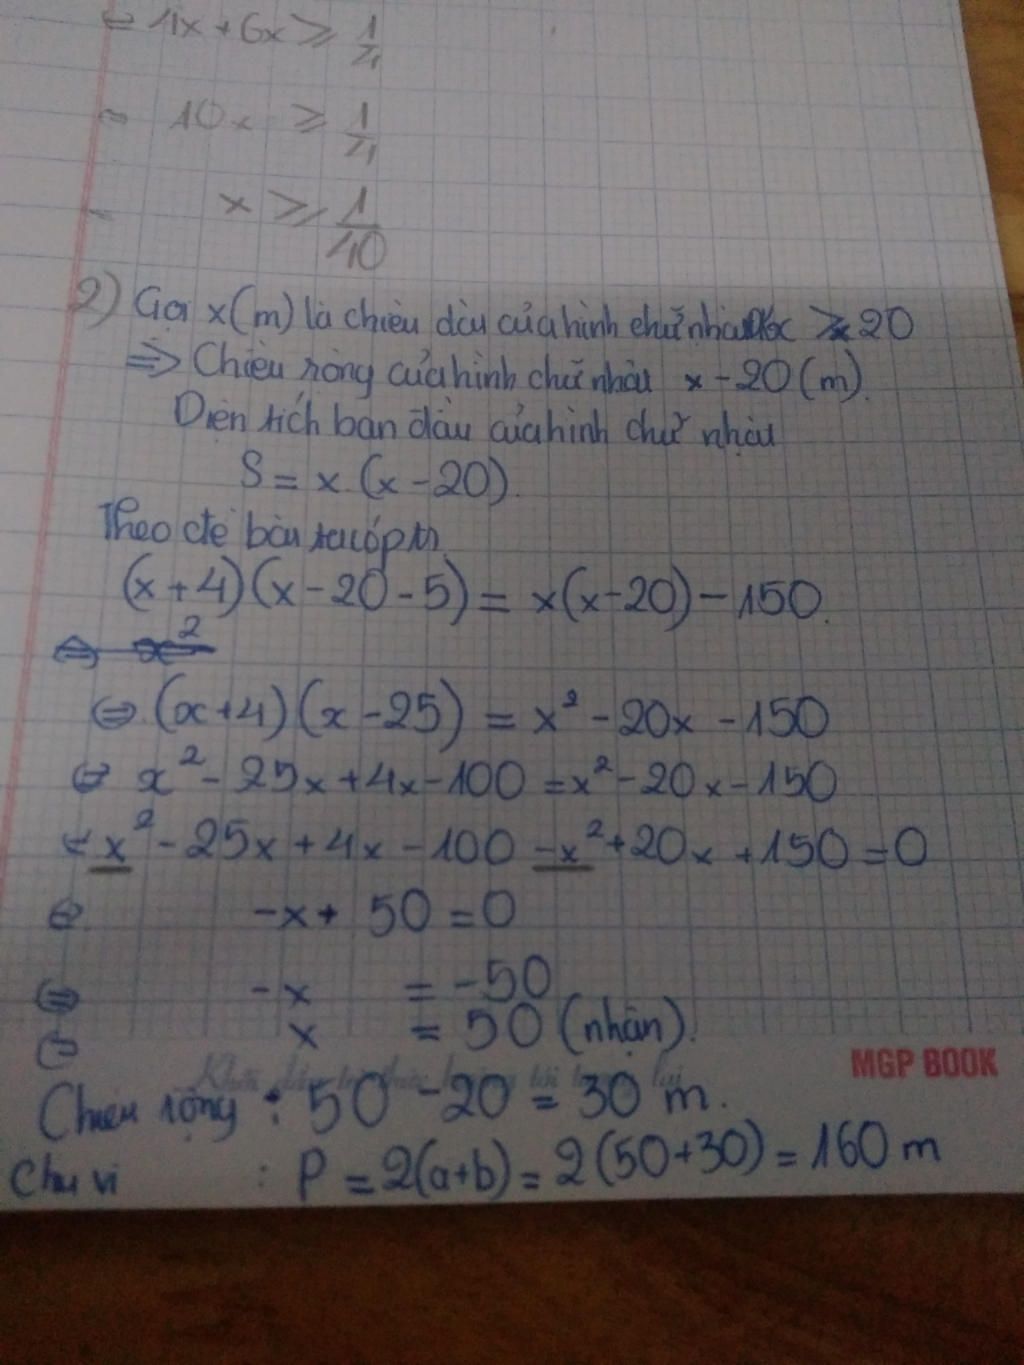 ⇔ 4x + 6x ≥ 1/4
⇔ 10x ≥ 1/4
x ≥ 1/40
2) Gọi x(m) là chiều dài của hình chữ nhật x > 20
=> Chiều rộng của hình chữ nhật x - 20 (m)
Diện tích ban đầu của hình chữ nhật
S = x.(x - 20).
Theo đề bài ta có pt
(x + 4)(x - 20 - 5) = x(x - 20) - 150.
⇔ x²
⇔ (x + 4)(x - 25) = x² - 20x - 150
⇔ x² - 25x + 4x - 100 = x² - 20x - 150
⇔ x² - 25x + 4x - 100 - x² + 20x + 150 = 0
⇔ -x + 50 = 0
⇔ -x = -50
⇔ x = 50 (nhận).
MGP BOOK
Chiều rộng : 50 - 20 = 30 m.
Chu vi : P = 2(a+b) = 2(50+30) = 160 m